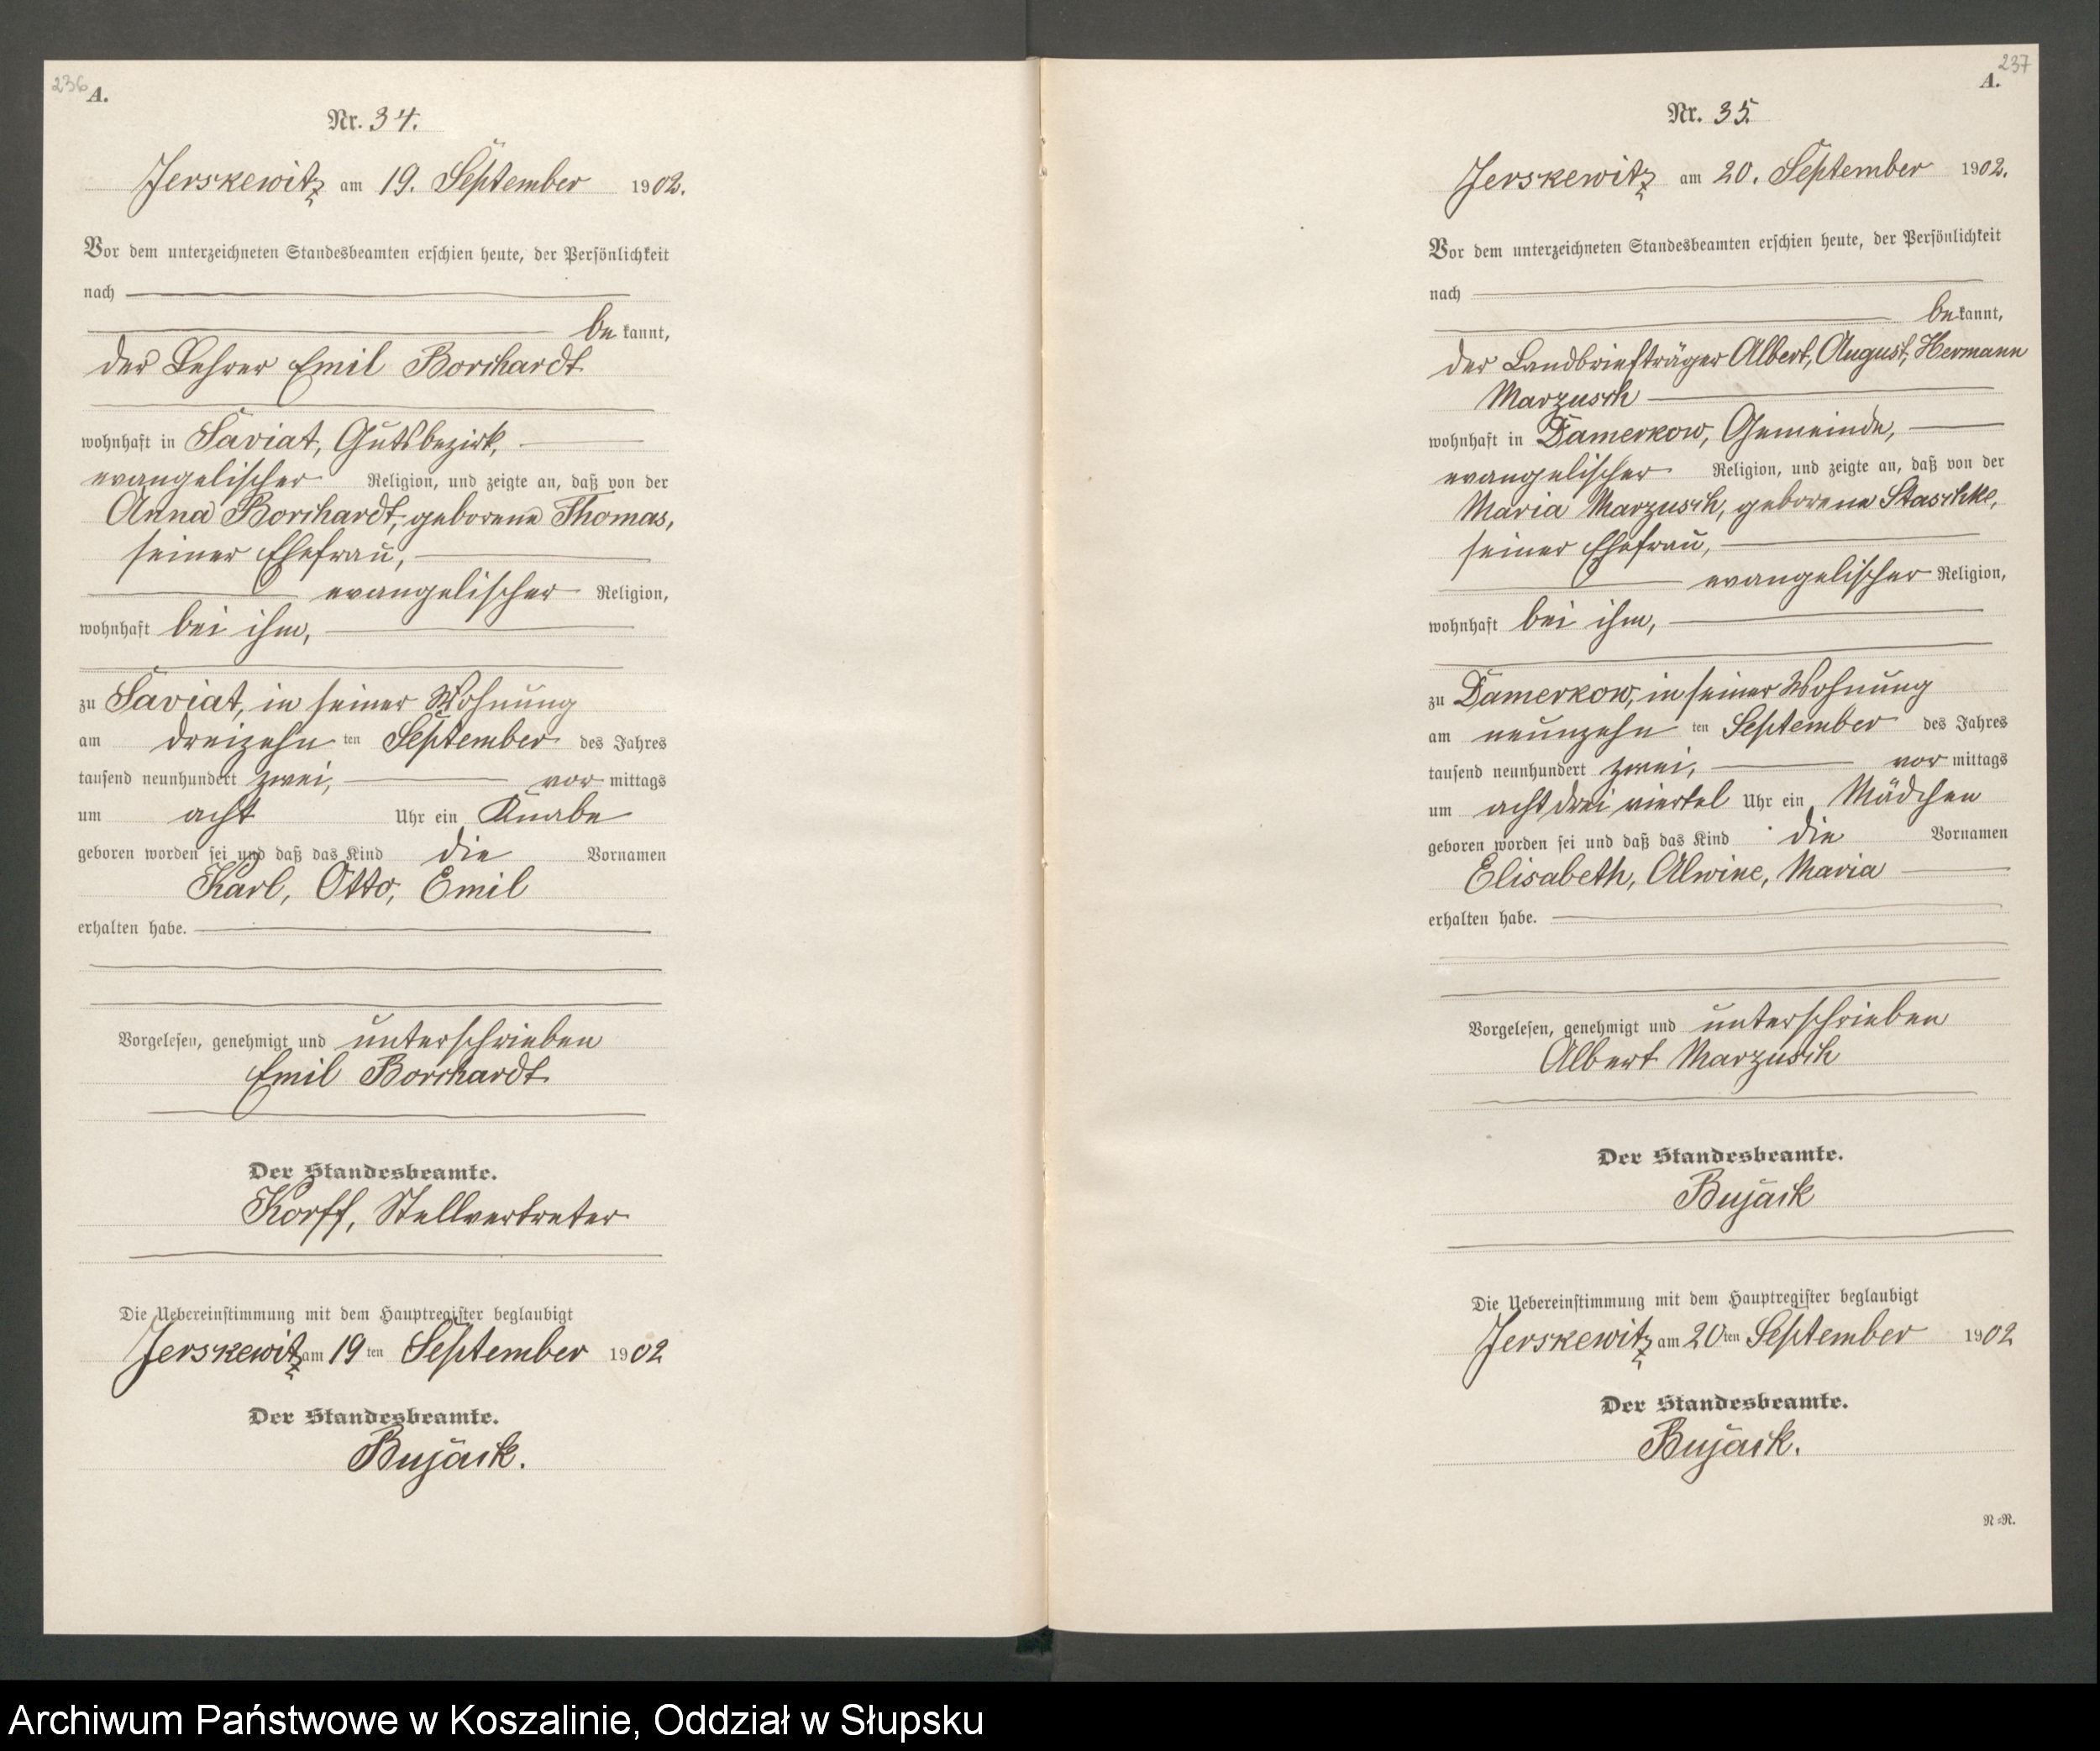 236
A.
Nr. 34.
Jerskewitz am 19. September 1902.
Vor dem unterzeichneten Standesbeamten erschien heute, der Persönlichkeit
nach
be kannt,
der Lehrer Emil Borchardt
wohnhaft in Saviat, Gutsbezirk,
evangelischer Religion, und zeigte an, daß von der
Anna Borchardt, geborene Thomas,
seiner Ehefrau,
evangelischer Religion,
wohnhaft bei ihm,
zu Saviat, in seiner Wohnung
am dreizehn ten September des Jahres
tausend neunhundert zwei, vor mittags
um acht Uhr ein Knabe
geboren worden sei und daß das Kind die Vornamen
Karl, Otto, Emil
erhalten habe.
Vorgelesen, genehmigt und unterschrieben
Emil Borchardt
Der Standesbeamte.
Korff, Stellvertreter
Die Uebereinstimmung mit dem Hauptregister beglaubigt
Jerskewitz am 19 ten September 1902
Der Standesbeamte.
Bujack.
237
A.
Nr. 35.
Jerskewitz am 20. September 1902.
Vor dem unterzeichneten Standesbeamten erschien heute, der Persönlichkeit
nach
bekannt,
der Landbriefträger Albert, August, Hermann
Marzusch
wohnhaft in Damerkow, Gemeinde,
evangelischer Religion, und zeigte an, daß von der
Maria Marzusch, geborene Staschke,
seiner Ehefrau,
evangelischer Religion,
wohnhaft bei ihm,
zu Damerkow, in seiner Wohnung
am neunzehn ten September des Jahres
tausend neunhundert zwei, vor mittags
um acht drei viertel Uhr ein Mädchen
geboren worden sei und daß das Kind die Vornamen
Elisabeth, Alwine, Maria
erhalten habe.
Vorgelesen, genehmigt und unterschrieben
Albert Marzusch
Der Standesbeamte.
Bujack
Die Uebereinstimmung mit dem Hauptregister beglaubigt
Jerskewitz am 20ten September 1902
Der Standesbeamte.
Bujack.
N=N.
Archiwum Państwowe w Koszalinie, Oddział w Słupsku